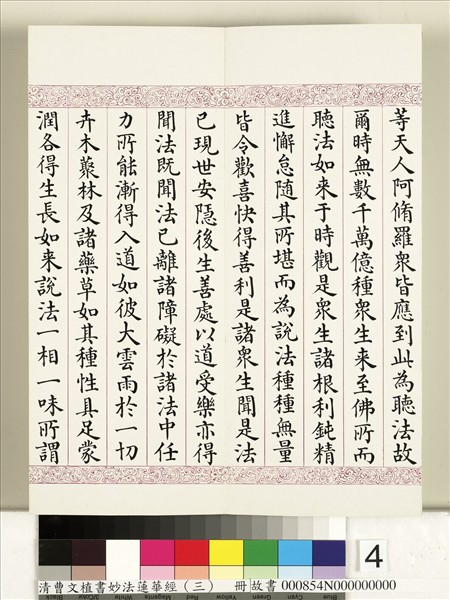 等天人阿脩羅衆皆應到此為聽法故
爾時無數千萬億種衆生來至佛所而
聽法如来于時觀是衆生諸根利鈍精
進懈怠随其所堪而為說法種種無量
皆令歡喜快得善利是諸衆生聞是法
已現世安隱後生善處以道受樂亦得
聞法既聞法已離諸障礙於諸法中任
力所能漸得入道如彼大雲雨於一切
卉木藂林及諸藥草如其種性具足蒙
潤各得生長如来說法一相一味所謂
4
清曹文植書妙法蓮華經（三） 冊 故書 000854N000000000